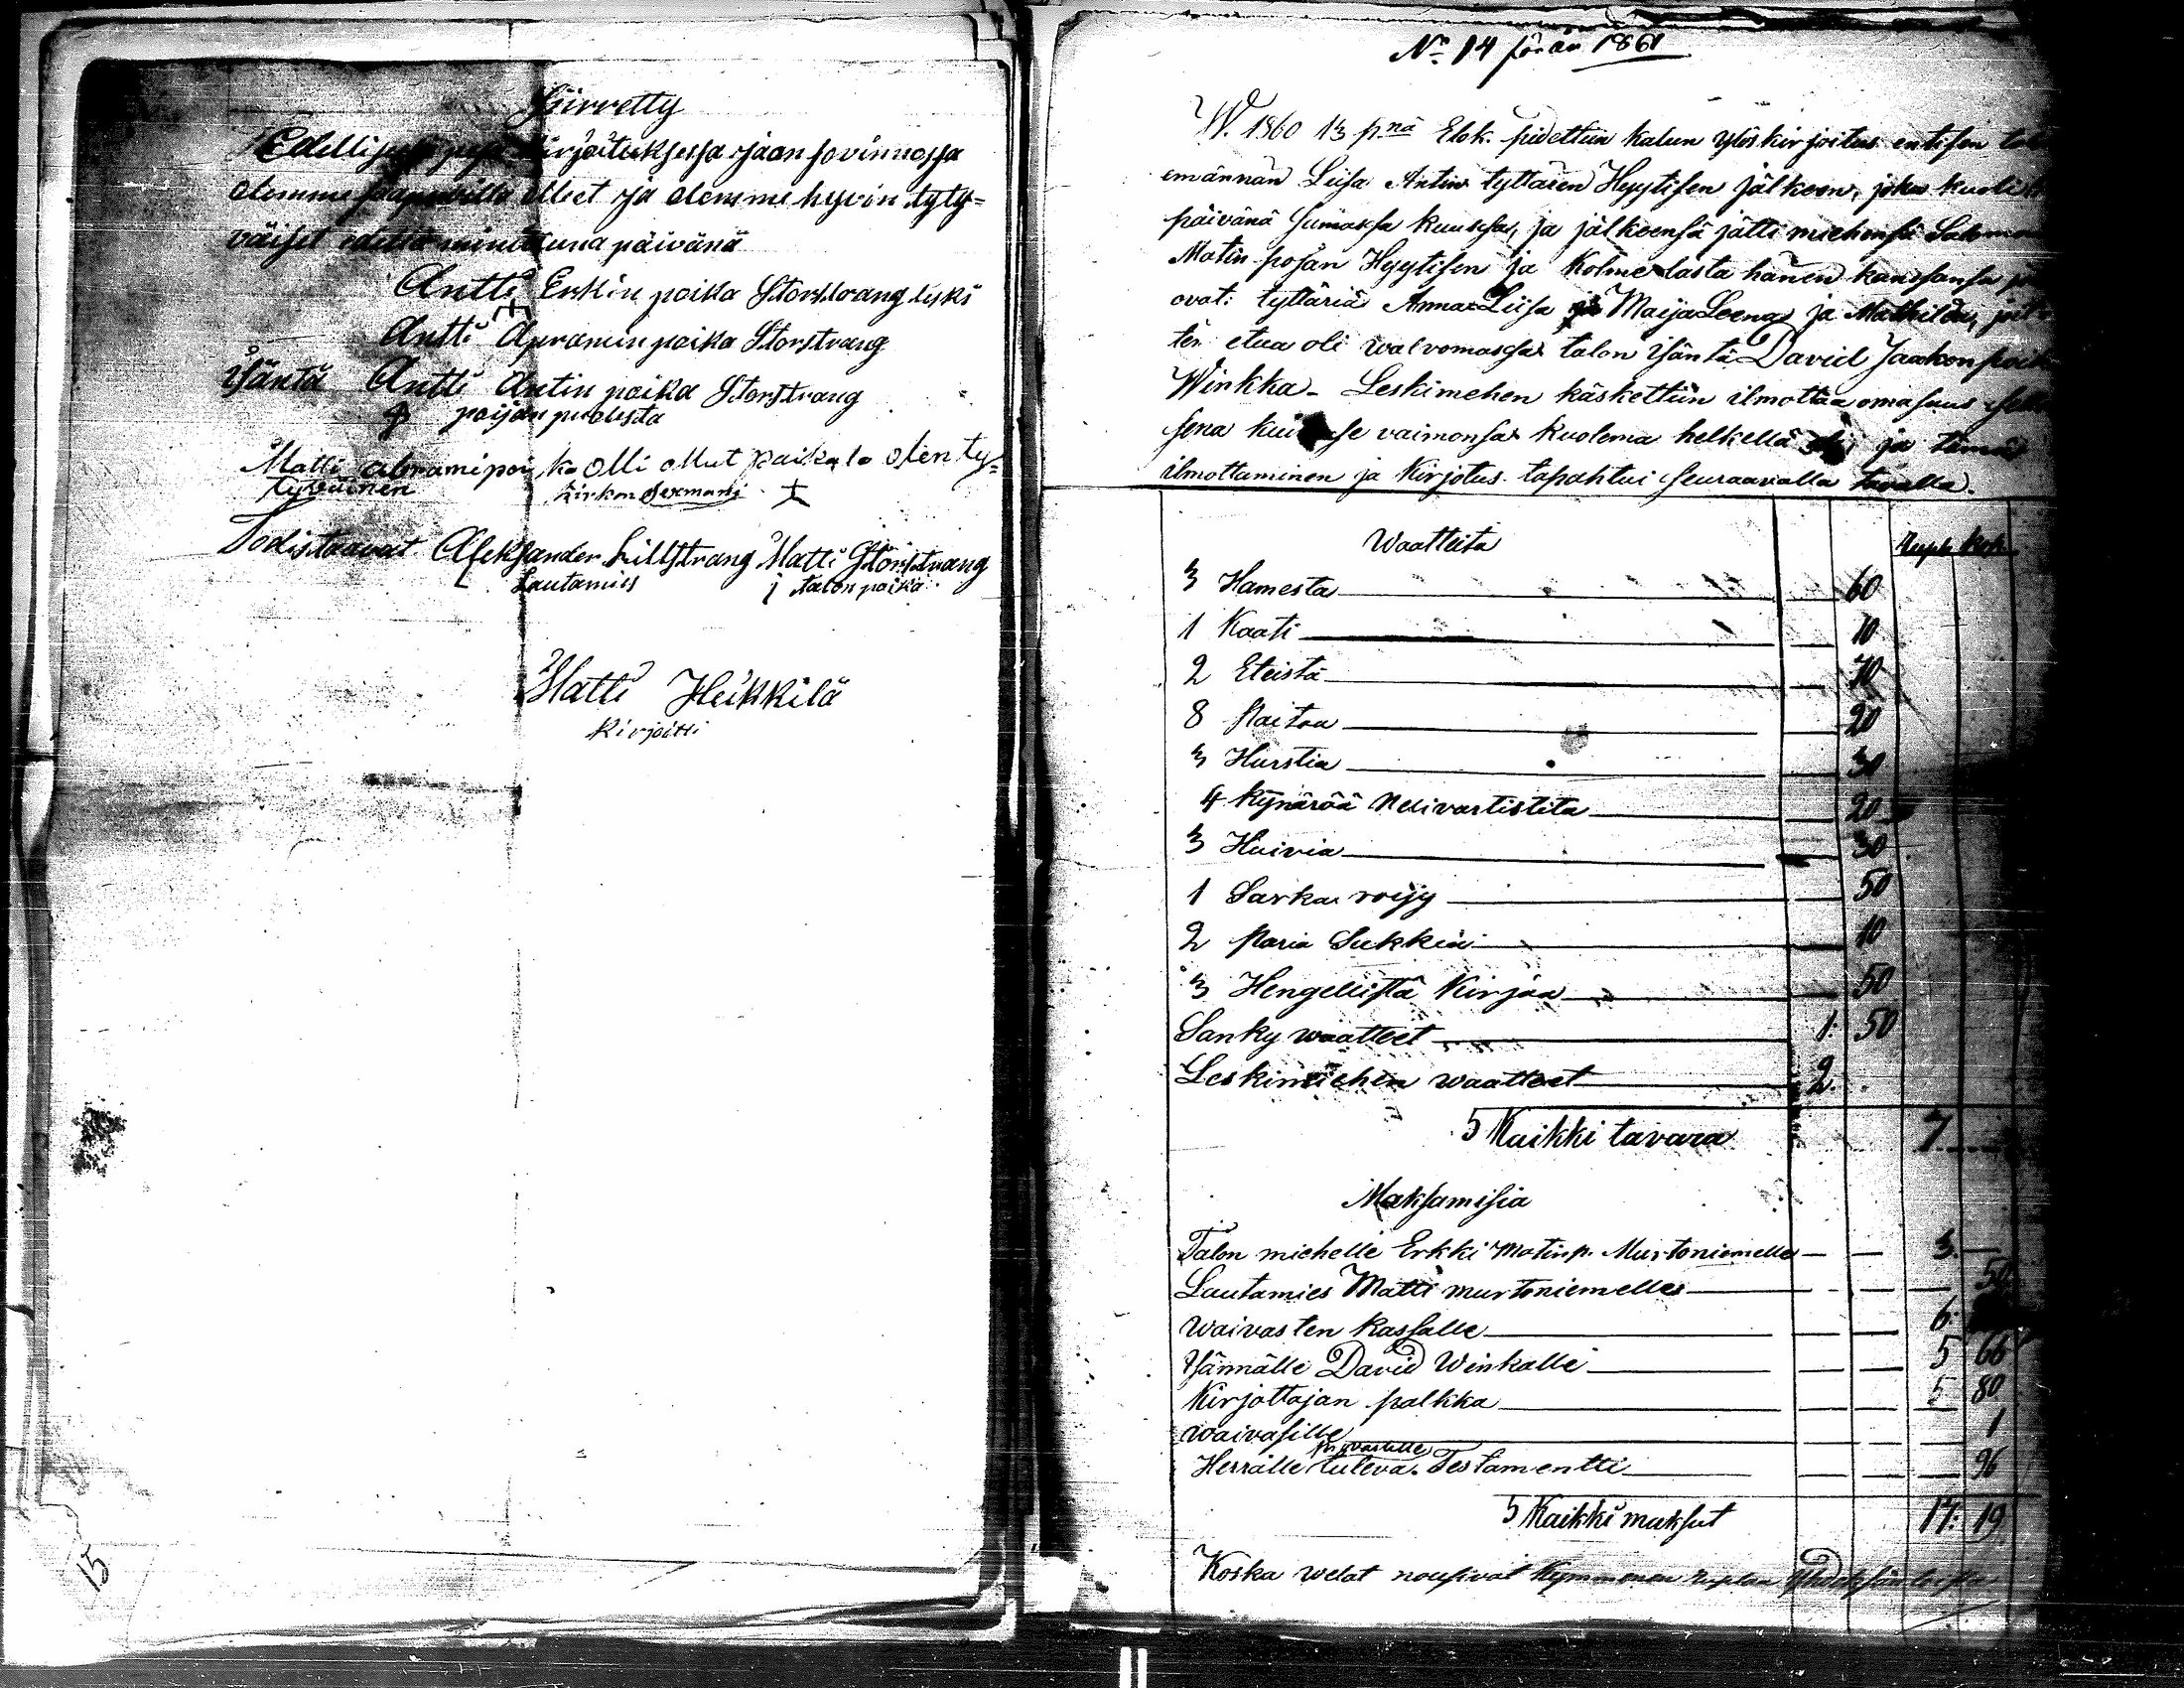 Siirretty
Edellisessä pesä kirjoituksessa ja jaon sovinnossa
olemme saapuvilla olleet ja olemme hyvin tyty=
väiset edellä minittuna päivänä
Antti Erkin poika Storstrang leski
Antti Apramin poika Storstrang
Isäntä Antti Antin poika Storstrang
poijan puolesta
Matti abrami poika olli ollut paikala olen ty=
tyväinen kirkon
Todistaavat Aleksander Lillstrang Matti Storstrang
Lautamies talon poika
Matti Heikkilä
Kirjoitti
15
No 14 för år 1861
W. 1860 13 p.nä Elok. pidettiin kalun ylöskirjoitus entisen
emännän Liisa Antin tyttären Hyytisen jälkeen, joka kuoli
päivänä kuussa, ja jälkeensä jätti miehensä
Matin pojan Hyytisen ja Kolme lasta hänen kanssansa
ovat: tyttäriä Anna Liisa ja Maija Leena ja Mathilda,
ten etua oli walvomassa talon isäntä David Jaakon
Winkka - Leskimehen käskettiin ilmottaa omasuus
sena kuin se vaimonsa kuolema helkellä oli ja tämä
ilmottaminen ja Kirjotus tapahtui seuraavalla tavalla.
Waatteita Rupl. Kok.
3 Hamesta 60
1 Kaati 10
2 Eteistä 10
8 Paitaa 20
3 Hurstia 30
4 kynärää Nelivartistita 20
3 Huivia 30
1 Sarka roijy 50
2 Paria Sukkia 10
3 Hengellistä Kirjaa 50
Sanky waatteet 1: 50
Leskimiehen waatteet 2.
S Kaikki tavara 7
Maksamisia
Talon miehelle Erkki Matinp. Murtoniemelle 3.
Lautamies Matti murtoniemelle 50
Waivasten kassalle 6.
Isännälle David Winkalle 5 66
Kirjottajan palkka 5 80
waivasille 1
provastille
Herralle tuleva Testamentti 96
S Kaikki maksut 17: 19
Koska welat nousivat kymmenen ruplan